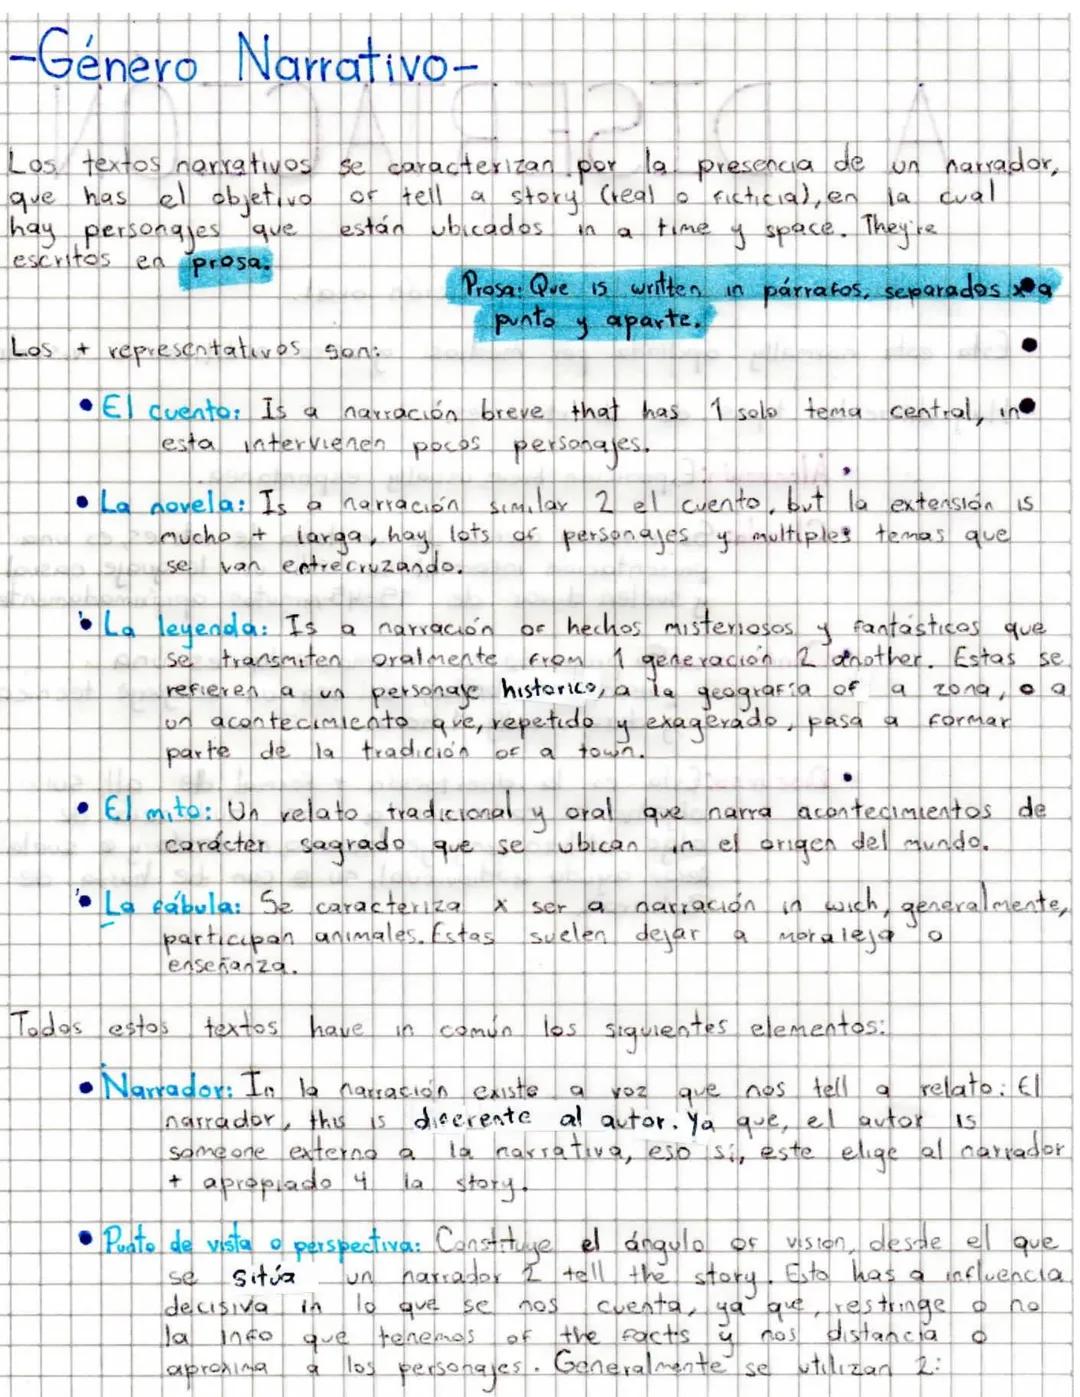 -Género Narrativo-
Los textos narrativos se caracterizan por la presencia de un narrador,
que has el objetivo of tell a story (real o ficticia), en la cual
hay personajes que están ubicados in a time y space. They're
escritos en prosa.
Prosa: Que is written in párrafos, separados x a
punto y aparte.
Los + representativos son:
• El cuento: Is a narración breve that has 1 solo tema central, in
esta intervienen pocos personajes.
• La novela: Is a narración similar 2 el cuento, but la extensión is
mucho + larga, hay lots of personajes y multiples temas que
se van entrecruzando.
• La leyenda: Is a narración of hechos misteriosos y fantásticos que
se transmiten oralmente from 1 generación 2 another. Estas se
refieren a un personaje historico, a la geografía of a zona, o a
un acontecimiento que, repetido y exagerado, pasa a formar
parte de la tradición of a town.
• El mito: Un relato tradicional y oral que narra acontecimientos de
carácter sagrado que se ubican in el origen del mundo.
• La fábula: Se caracteriza x ser a narración in wich, generalmente,
participan animales. Estas suelen dejar a moraleja o
enseñanza.
Todos estos textos have in común los siguientes elementos:
• Narrador: In la narración existe a voz que nos tell a relato: El
narrador, this is diferente al autor. Ya que, el autor is
someone externo a la narrativa, eso sí, este elige al narrador
+ apropiado 4 la story.
• Punto de vista o perspectiva: Constituye el ángulo of vision, desde el que
se sitúa un narrador 2 tell the story. Esto has a influencia
decisiva in lo que se nos cuenta, ya que, restringe o no
la info que tenemos of the facts y nos distancia o
aproxima a los personajes. Generalmente se utilizan 2: